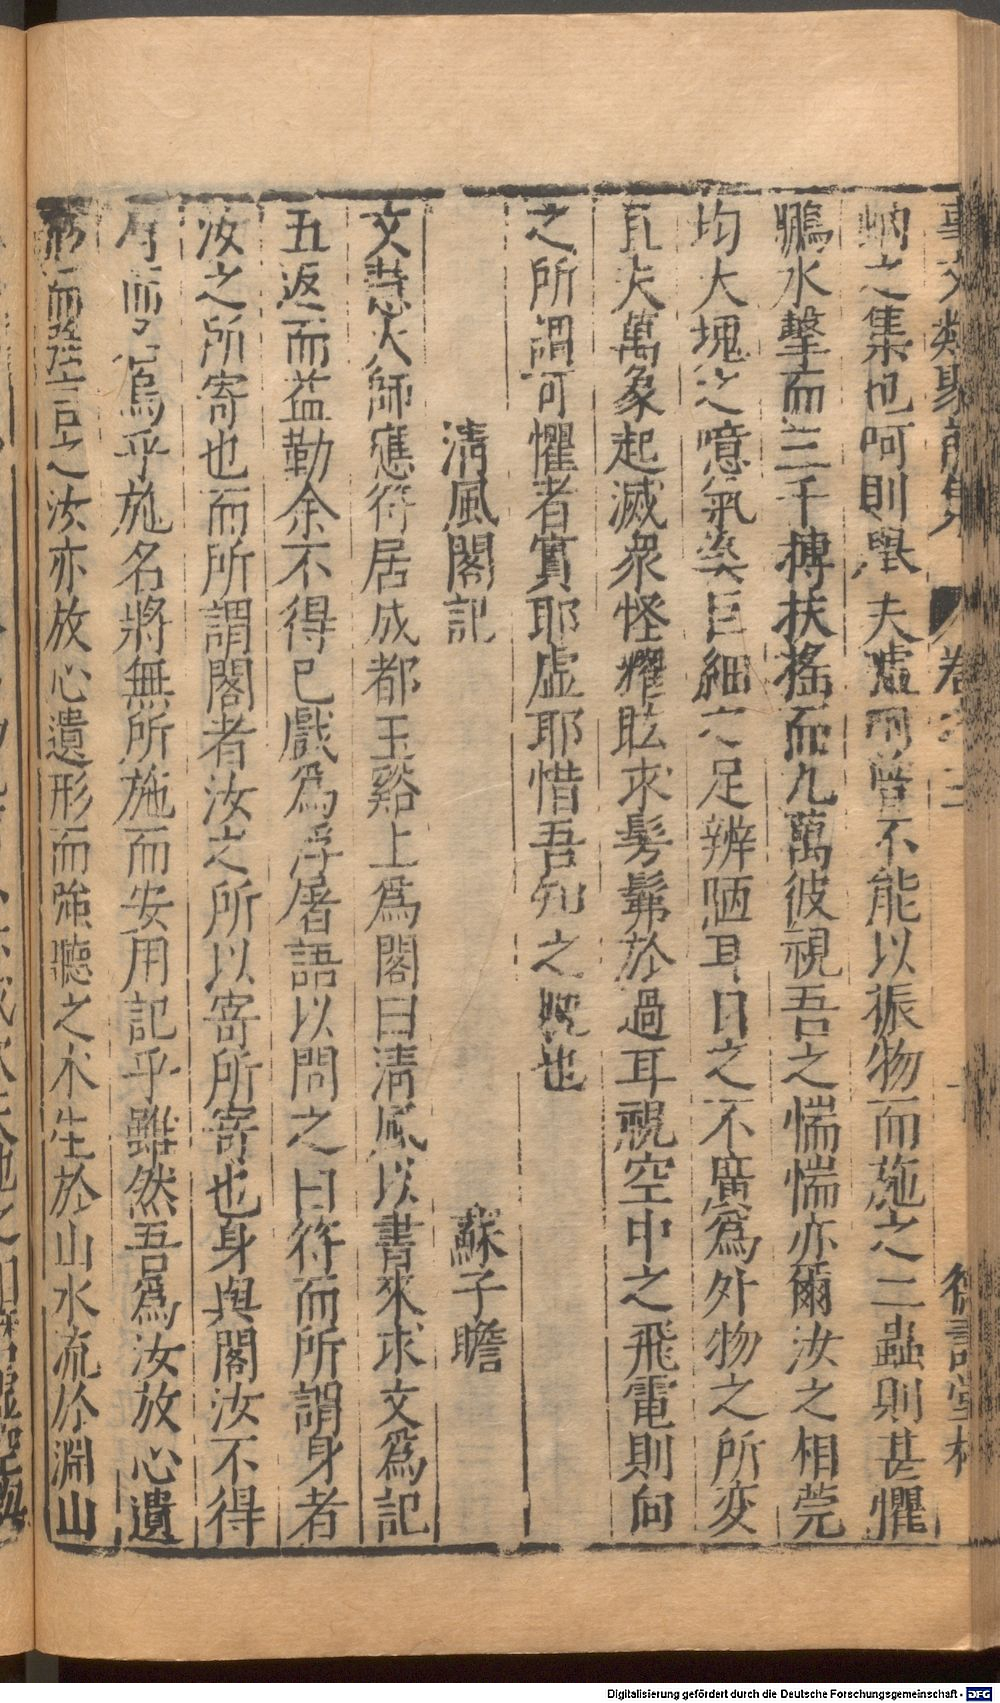 事文類聚前集 卷之三 德壽堂梓
蚋之集也呵則舉夫噓呵曾不能以振物而施之二蟲則甚懼
鵬水擊而三千搏扶搖而九萬彼視吾之惴惴亦爾汝之相莞
均大塊之噫氣奚巨細之足辨陋耳目之不廣爲外物之所変
且夫萬象起滅衆怪耀眩求髣髴於過耳視空中之飛電則向
之所謂可懼者實耶虛耶惜吾知之晚也
清風閣記 蘇子瞻
文慧大師應符居成都玉谿上爲閣曰清風以書來求文爲記
五返而益勤余不得已戲爲浮屠語以問之曰符而所謂身者
汝之所寄也而所謂閣者汝之所以寄所寄也身與閣汝不得
有而 烏乎施名將無所施而安用記乎雖然吾爲汝放心遺
形而強言之汝亦放心遺形而強聽之木生於山水流於淵山
Digitalisierung gefördert durch die Deutsche Forschungsgemeinschaft - DFG